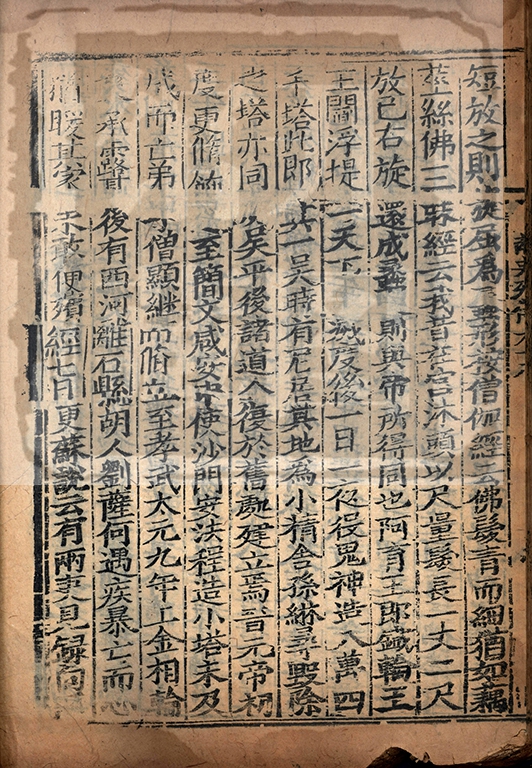 短放之則旋屈為蠡形按僧伽經云佛髮青而細猶如藕
莖絲佛三昧經云我昔在宮沐頭以尺量髮長一丈二尺
放已右旋還成蠡則與帝所得同也阿育王即鐵輪王
王閻浮提一天下滅度後一日一夜役鬼神造八萬四
千塔此即其一吳時有尼居其地為小精舍孫綝尋毀除
之塔亦同吳平後諸道人復於舊處建立焉晉元帝初
度更脩飾至簡文咸安中使沙門安法程造小塔未及
成而亡弟子僧顯繼而脩立至孝武太元九年上金相輪
承露後有西河離石縣胡人劉薩何遇疾暴亡而心
猶暖其家未敢便殯經七日更蘇說云有兩吏見録向